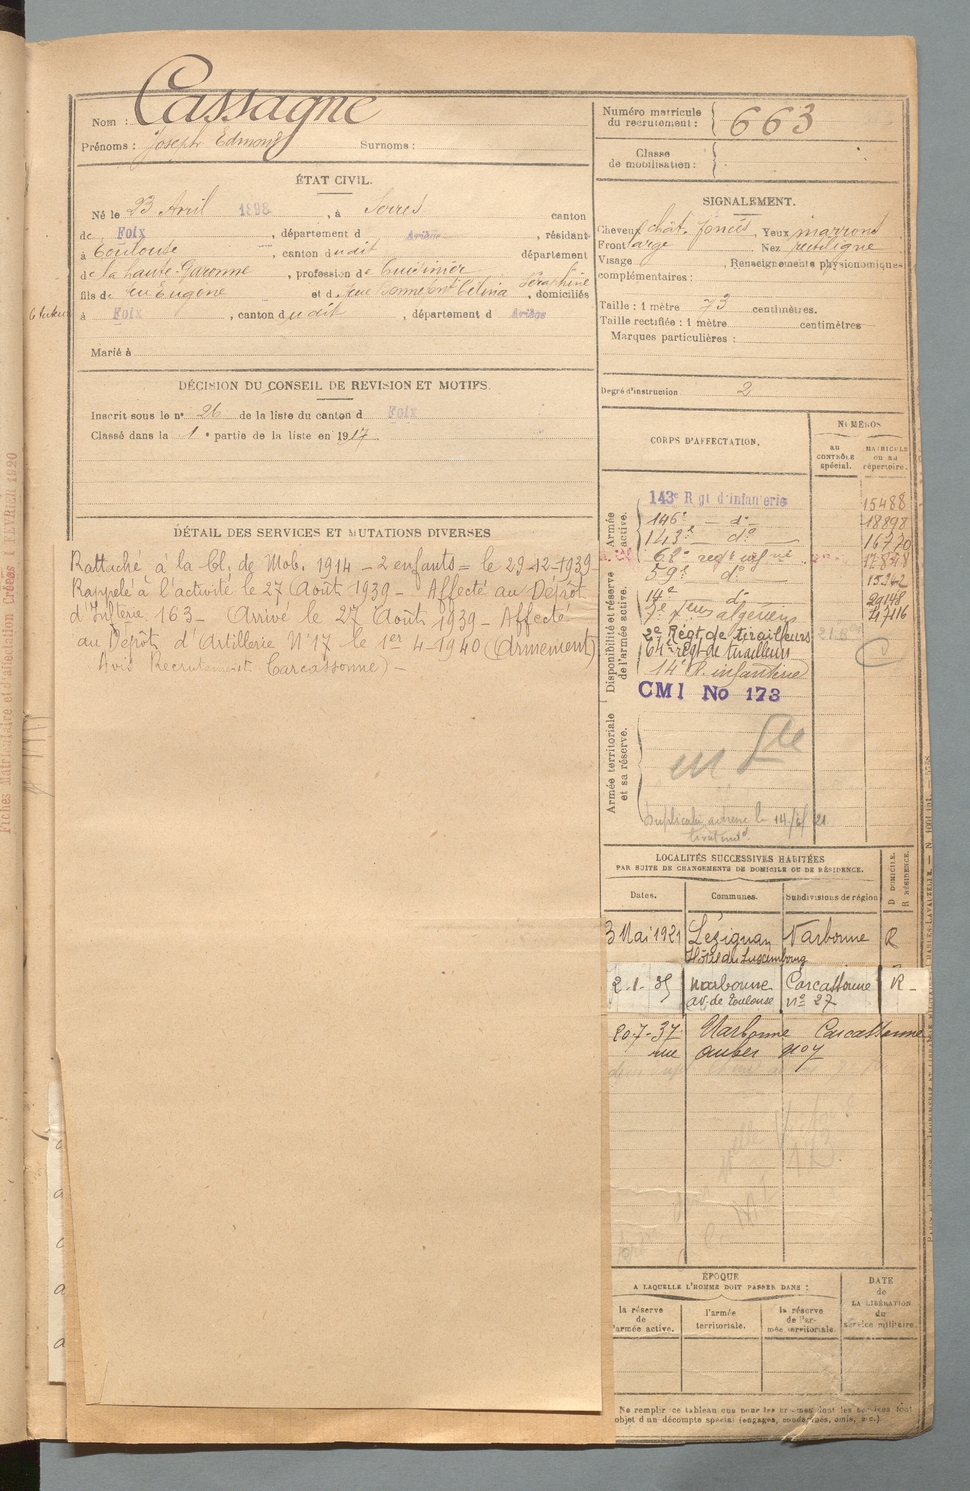 Cassagne
Nom :
Prénoms : Joseph Edmond Surnoms :
ÉTAT CIVIL.
Né le 23 Avril 1898, à Serres canton
de Foix, département d Ariège, résidant
à Toulouse, canton dudit département
de la Haute-Garonne, profession de Cuisinier
fils de feu Eugène et de feue Bonnefont Célina Séraphine, domiciliés
à Foix, canton dudit, département d Ariège
Marié à
DÉCISION DU CONSEIL DE REVISION ET MOTIFS.
Inscrit sous le n° 26 de la liste du canton d Foix
Classé dans la 1e partie de la liste en 1917.
DÉTAIL DES SERVICES ET MUTATIONS DIVERSES
Rattaché à la Cl. de Mob. 1914 - 2 enfants = le 29-12-1939-
Rappelé à l'activité le 27 Août 1939 - Affecté au Dépôt
d'Infterie 163 - Arrivé le 27 Août 1939 - Affecté
au Dépôt d'Artillerie N°17 - le 1er 4-1940 (Armement)
Avis Recrutement Carcassonne) -
Numéro matricule
du recrutement : 663
Classe
de mobilisation :
SIGNALEMENT.
Cheveux chât. foncés, Yeux marrons
Front large Nez rectiligne
Visage, Renseignements physionomiques
complémentaires :
Taille : 1 mètre 73 centimètres.
Taille rectifiée : 1 mètre centimètres
Marques particulières :
Degré d'instruction 2
CORPS D'AFFECTATION.
NUMÉROS
au CONTRÔLE spécial.
MATRICULE ou au répertoire.
Armée active.
143e Rgt d'infanterie 15488
146e - do - 18898
143e do 16770
Disponibilité et réserve de l'armée active.
62e regt infrie
59e do 15242
14e do
7e rt tirs algériens 47116
2e Régt de tirailleurs
64e régt de tirailleurs
14e R. infanterie
CMI No 173
Armée territoriale et sa réserve.
le 14/6/21
LOCALITÉS SUCCESSIVES HABITÉES
PAR SUITE DE CHANGEMENTS DE DOMICILE OU DE RÉSIDENCE.
Dates. Communes. Subdivisions de région D DOMICILE. R RÉSIDENCE.
3 Mai 1921 Lézignan Narbonne R
Hôtel du Luxembourg
2-1-35 Narbonne Carcassonne R -
av. de Toulouse n° 27
20-7-37 Narbonne Carcassonne
rue Auber n° 7
ÉPOQUE
A LAQUELLE L'HOMME DOIT PASSER DANS :
DATE
de
LA LIBÉRATION
du
service militaire.
la réserve
de
l'armée active.
l'armée
territoriale.
la réserve
de l'ar-
mée territoriale.
Ne remplir ce tableau que pour les hommes dont les services font
l'objet d'un décompte spécial (engagés, condamnés, omis, etc.).